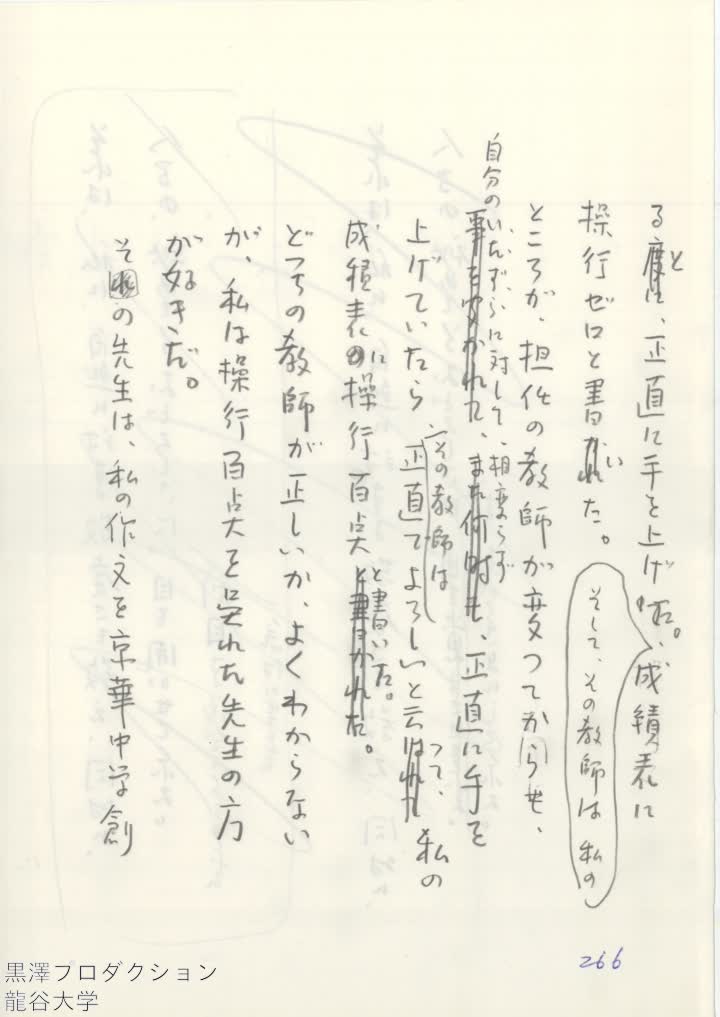 る度に、と正直に手を上げた。成績表に
そして、その教師は 私の
操行ゼロと書かれいた。
ところが、担任の教師が変つてからも、
自分のいたずらに対して、相変らず
事をゆかれた、また何時も、正直に手を
その教師は
上げていたら、正直でよろしいと云はれてつて、私の
成績表のに操行百点と書かれた。と書いた。
どつちの教師が正しいか、よくわからない
が、私は操行百点を呉れた先生の方
が好きだ。
その先生は、私の作文を京華中学創
266
黒澤プロダクション
龍谷大学